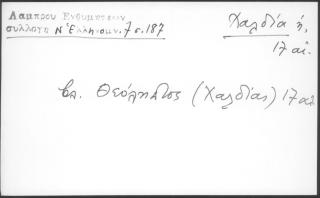 Λαμπρου Ενθυμησεων
συλλογη Ν Ἑλληνομν. 7 σ. 187
Χαλδία ἡ,
17 αἰ.
βλ. Θεόληπτος (Χαλδίας) 17 αἰ.